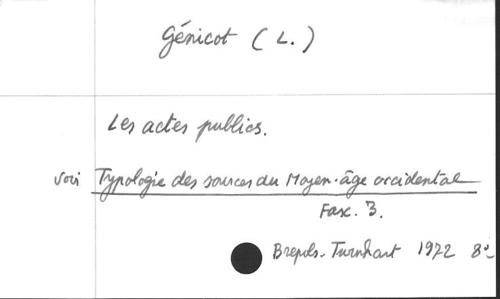 Génicot (L.)
Les actes publics.
Voir Typologie des sources du Moyen-âge occidental
Fasc. 3.
Brepols-Turnhout 1972 8º